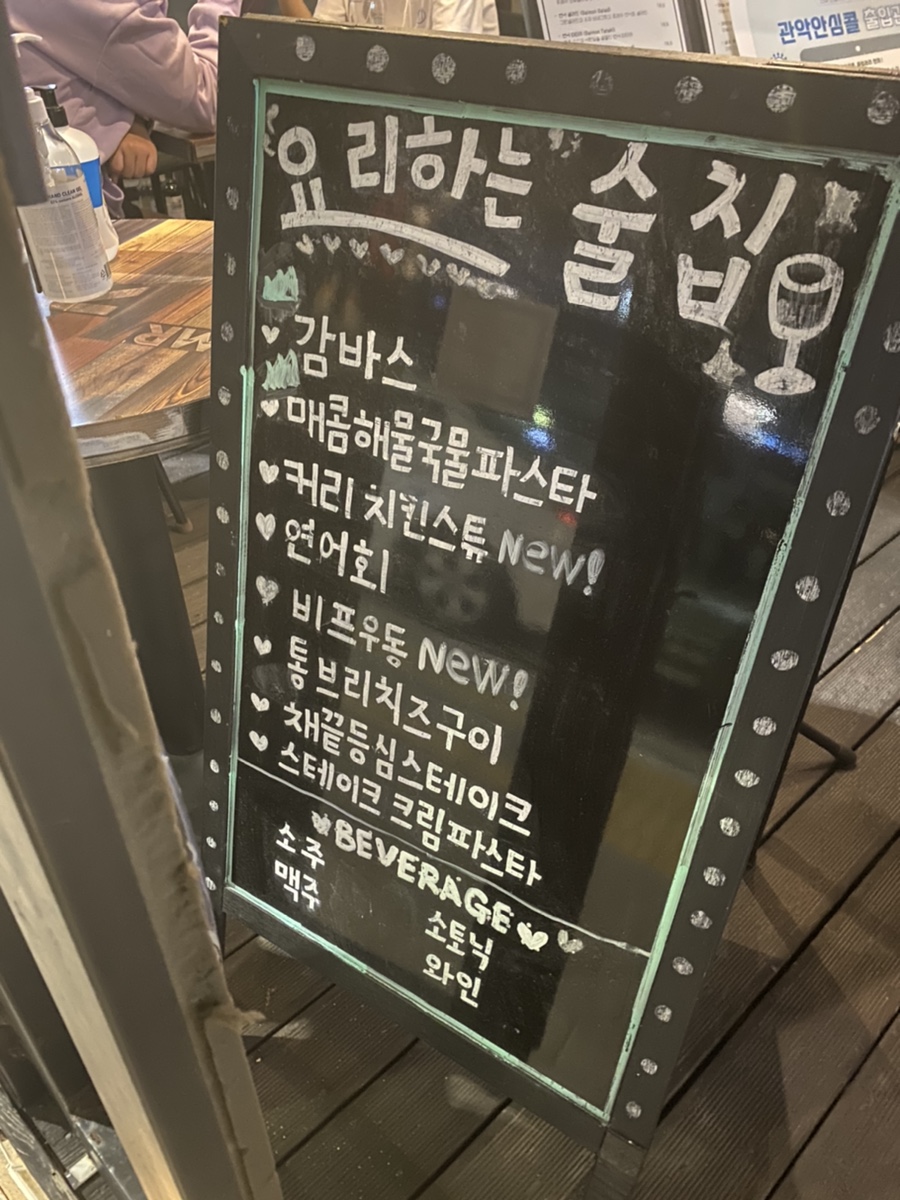 관악안심콜 출입관
"요리하는" 술집
감바스
매콤해물국물파스타
커리 치킨스튜 New!
연어회
비프우동 New!
통브리치즈구이
채끝등심스테이크
스테이크 크림파스타
BEVERAGE
소주
맥주
소토닉
와인